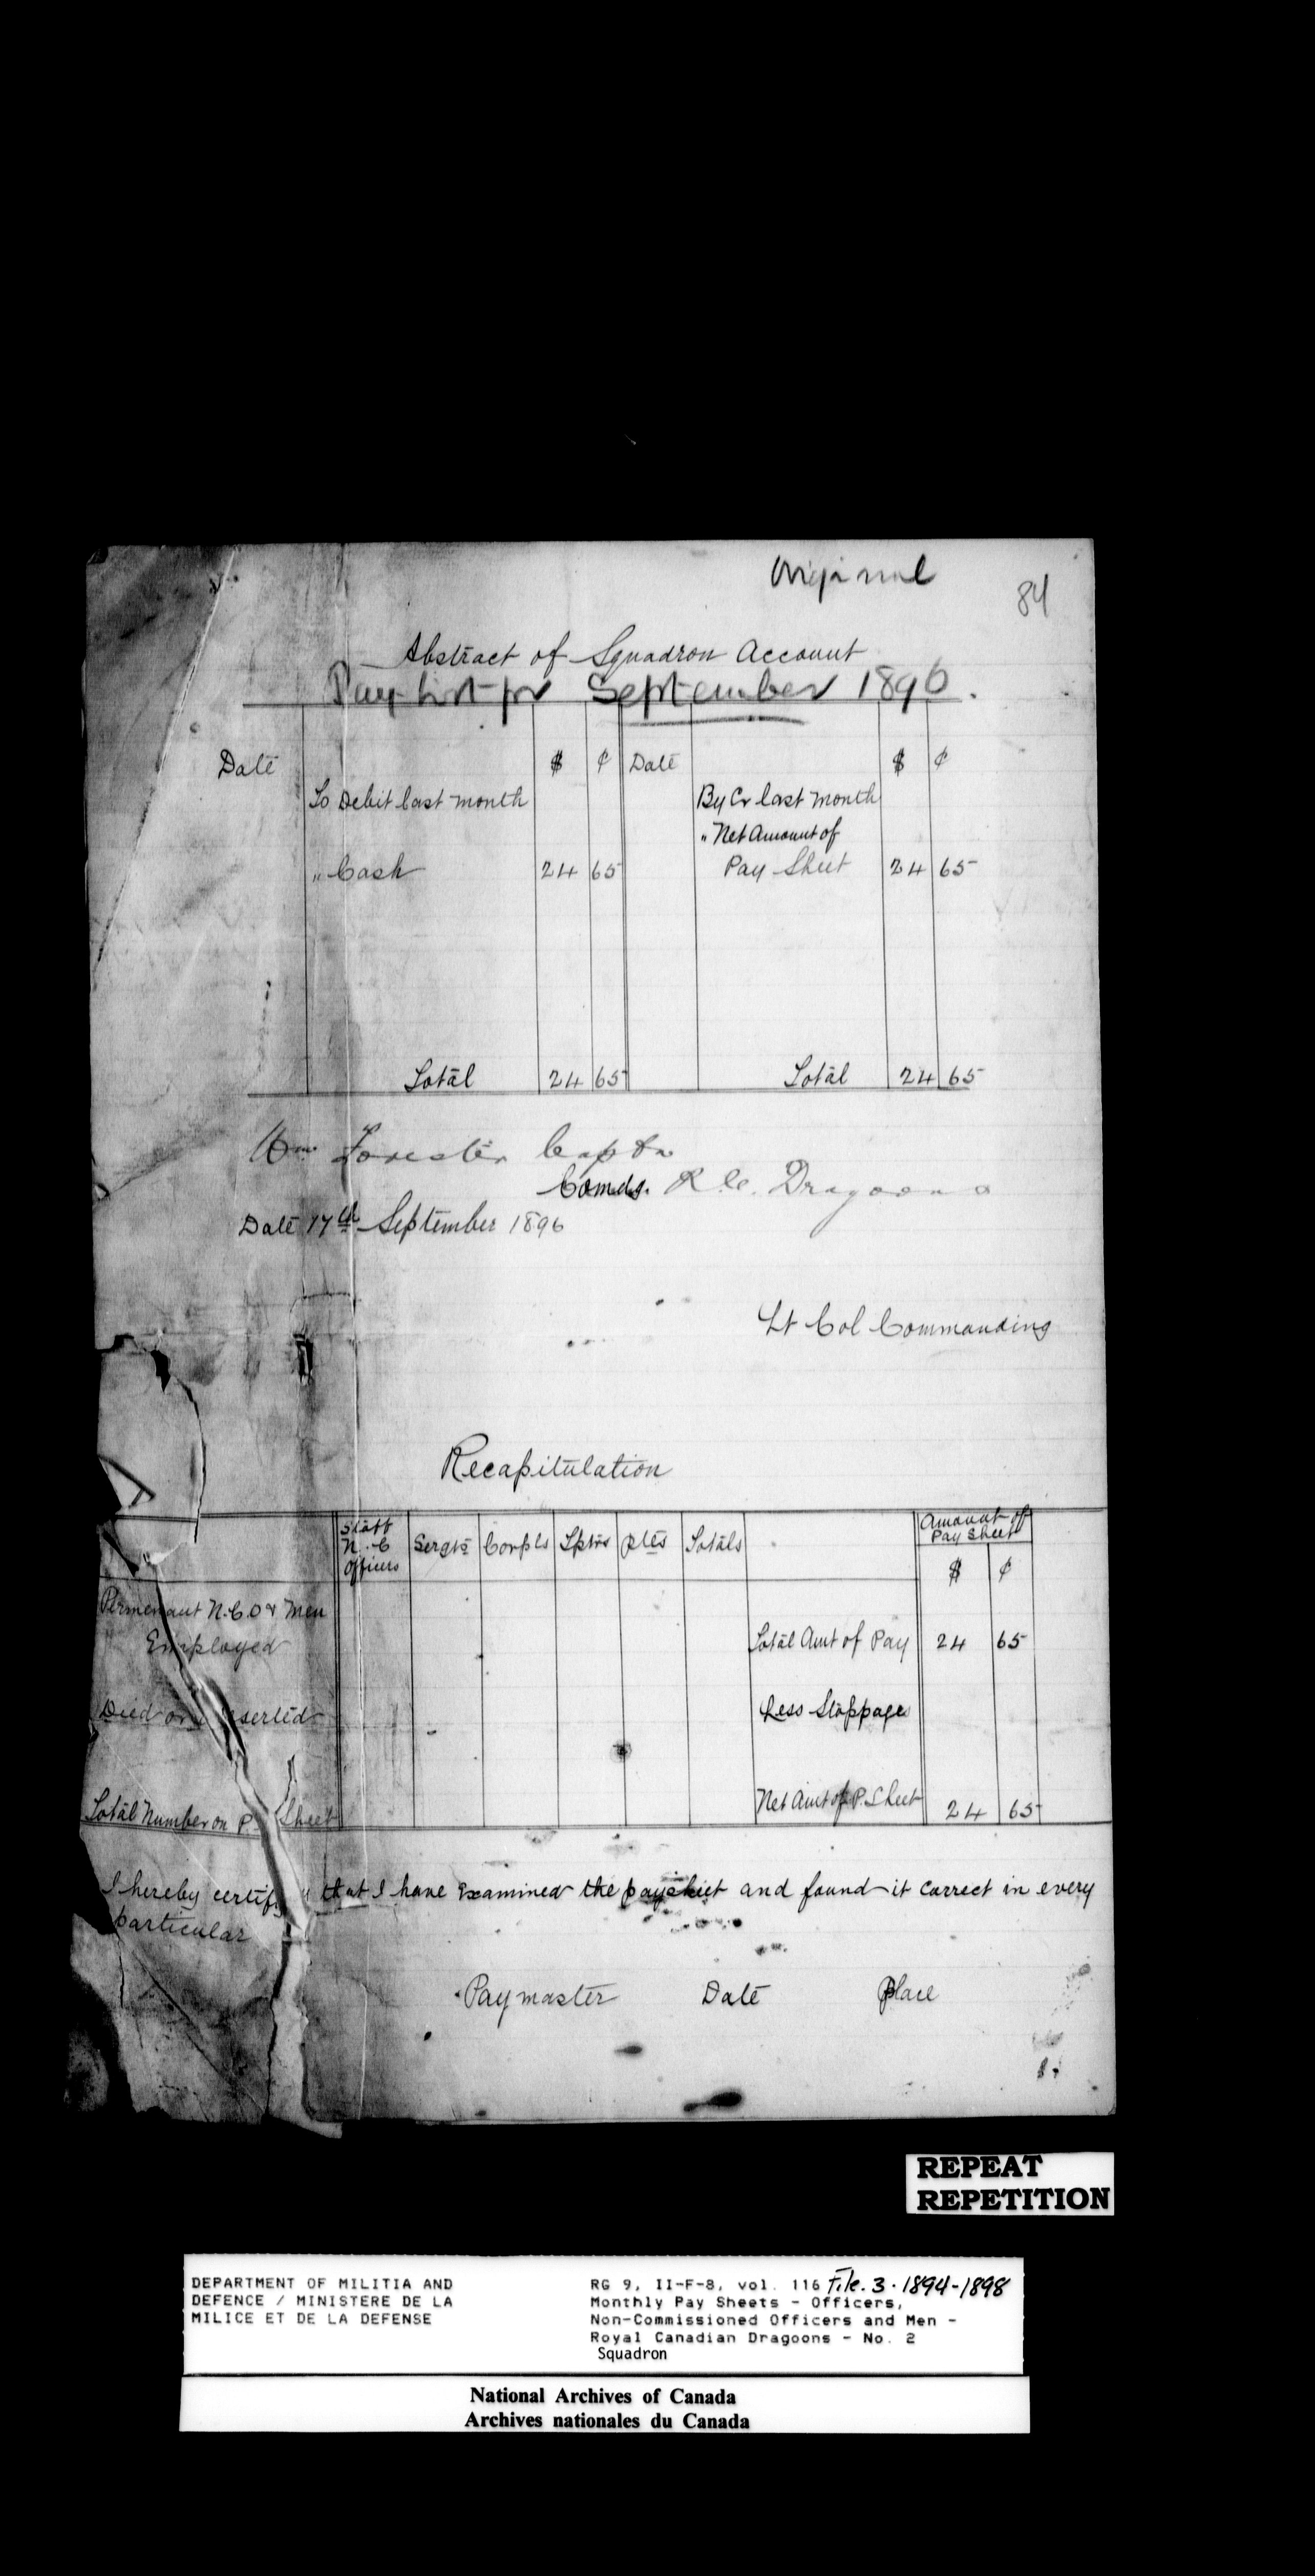 Original
84
Abstract of Squadron Account
Pay List for September 1896.
Date $ ¢ Date $ ¢
To Debit last month By Cr last month
" Net Amount of
" Cash 24 65 Pay Sheet 24 65
Total 24 65 Total 24 65
Wm Forester Captn
Comdg. R.C. Dragoons
Date 17th September 1896
Lt Col Commanding
Recapitulation
Staff N.C Officers Sergts Corpls Tptrs Ptes Totals Amount of Pay Sheet
$ ¢
Permenant N.C.O & Men
Employed Total Amt of Pay 24 65
Died or Deserted Less Stoppages
Total Number on P. Sheet Net Amt of P. Sheet 24 65
I hereby certify that I have Examined the paysheet and found it correct in every
particular
Paymaster Date Place
REPEAT
REPETITION
DEPARTMENT OF MILITIA AND
DEFENCE / MINISTERE DE LA
MILICE ET DE LA DEFENSE
RG 9, II-F-8, vol. 116 File. 3. 1894-1898
Monthly Pay Sheets - Officers,
Non-Commissioned Officers and Men -
Royal Canadian Dragoons - No. 2
Squadron
National Archives of Canada
Archives nationales du Canada